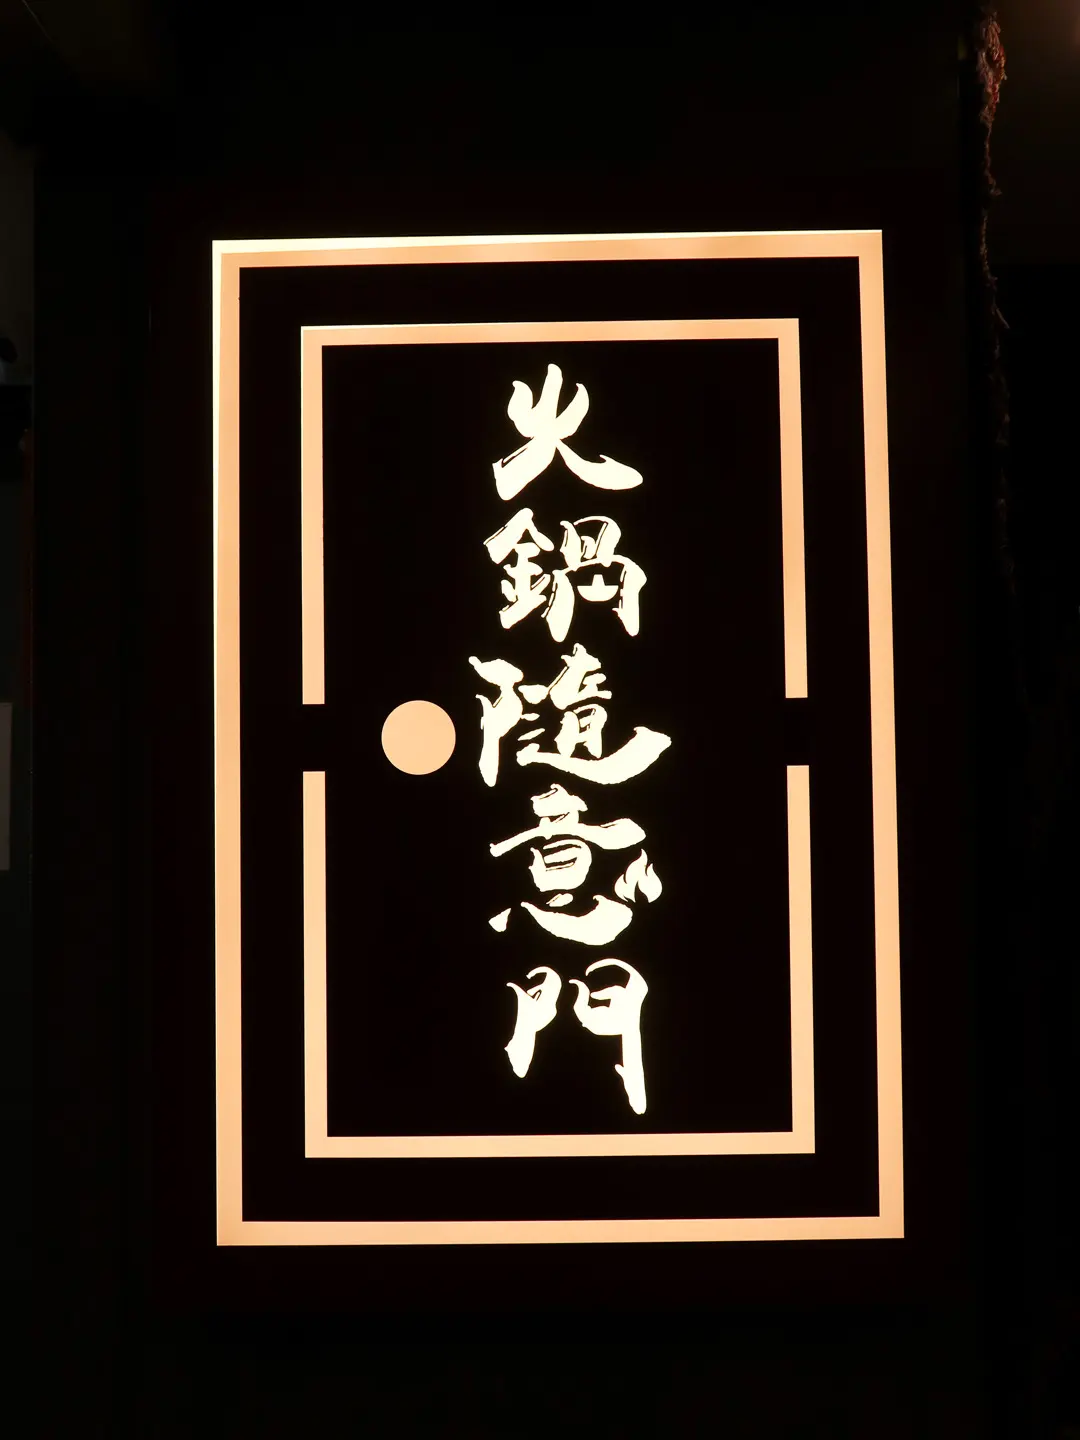 火鍋隨意門